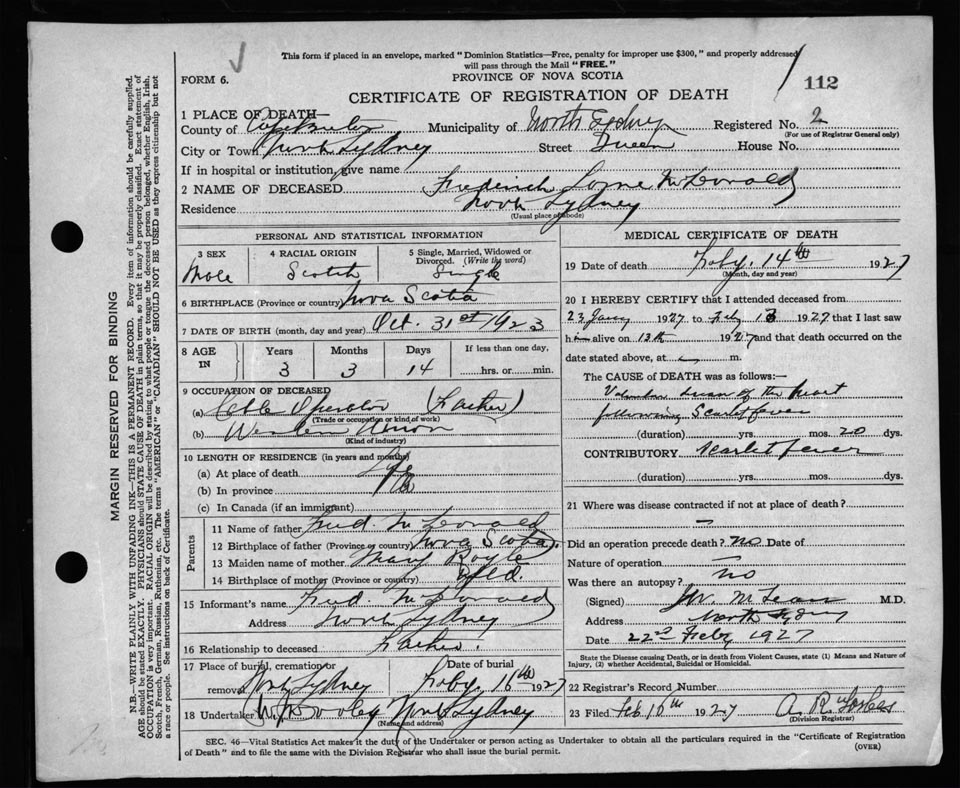 This form if placed in an envelope, marked "Dominion Statistics—Free, penalty for improper use $300," and properly addressed
will pass through the Mail "FREE."
FORM 6.
PROVINCE OF NOVA SCOTIA
112
CERTIFICATE OF REGISTRATION OF DEATH
1 PLACE OF DEATH—
County of Cape Breton Municipality of North Sydney Registered No. 2
(For use of Registrar General only)
City or Town North Sydney Street Queen House No.
If in hospital or institution, give name
2 NAME OF DECEASED Frederick Lorne McDonald
Residence North Sydney
(Usual place of abode)
PERSONAL AND STATISTICAL INFORMATION
3 SEX 4 RACIAL ORIGIN 5 Single, Married, Widowed or
Divorced. (Write the word)
Male Scotch Single
6 BIRTHPLACE (Province or country) Nova Scotia
7 DATE OF BIRTH (month, day and year) Oct. 31st 1923
8 AGE IN Years Months Days If less than one day,
3 3 14 hrs. or min.
9 OCCUPATION OF DECEASED
(a) Cable Operator (Father)
(Trade or occupation or kind of work)
(b) Western Union
(Kind of industry)
10 LENGTH OF RESIDENCE (in years and months)
(a) At place of death Life
(b) In province
(c) In Canada (if an immigrant)
Parents
11 Name of father Fred. McDonald
12 Birthplace of father (Province or country) Nova Scotia
13 Maiden name of mother Mary
14 Birthplace of mother (Province or country) Nfld.
15 Informant's name Fred. McDonald
Address North Sydney
16 Relationship to deceased Father.
17 Place of burial, cremation or Date of burial
removal North Sydney Feby. 16th 1927
18 Undertaker North Sydney
(Name and address)
MEDICAL CERTIFICATE OF DEATH
19 Date of death Feby. 14th 1927
(Month, day and year)
20 I HEREBY CERTIFY that I attended deceased from
23 Jany 1927 to Feby 13 1927 that I last saw
him alive on 13th 1927 and that death occurred on the
date stated above, at m.
The CAUSE of DEATH was as follows:—
Valvular disease of the heart
following Scarlet fever
(duration) yrs. mos. 20 dys.
CONTRIBUTORY Scarlet fever
(duration) yrs. mos. dys.
21 Where was disease contracted if not at place of death?
—
Did an operation precede death? no Date of
Nature of operation —
Was there an autopsy? no
(Signed) McLean M.D.
Address North Sydney
Date 22nd Feby 1927
State the Disease Causing Death, or in death from Violent Causes, state (1) Means and Nature of
Injury, (2) whether Accidental, Suicidal or Homicidal.
22 Registrar's Record Number
23 Filed Feb 16th 1927 A. R. Forbes
(Division Registrar)
SEC. 46—Vital Statistics Act makes it the duty of the Undertaker or person acting as Undertaker to obtain all the particulars required in the "Certificate of Registration
of Death" and to file the same with the Division Registrar who shall issue the burial permit.
(OVER)
MARGIN RESERVED FOR BINDING
N.B.—WRITE PLAINLY WITH UNFADING INK—THIS IS A PERMANENT RECORD. Every item of information should be carefully supplied.
AGE should be stated EXACTLY. PHYSICIANS should state CAUSE OF DEATH in plain terms, so that it may be properly classified. Exact statement of
OCCUPATION is very important. RACIAL ORIGIN will be described by stating to what people or tongue the deceased person belonged, whether English, Irish,
Scotch, French, German, Russian, Ruthenian, etc. The terms "AMERICAN" or "CANADIAN" SHOULD NOT BE USED as they express citizenship but not
a race or people. See instructions on back of Certificate.